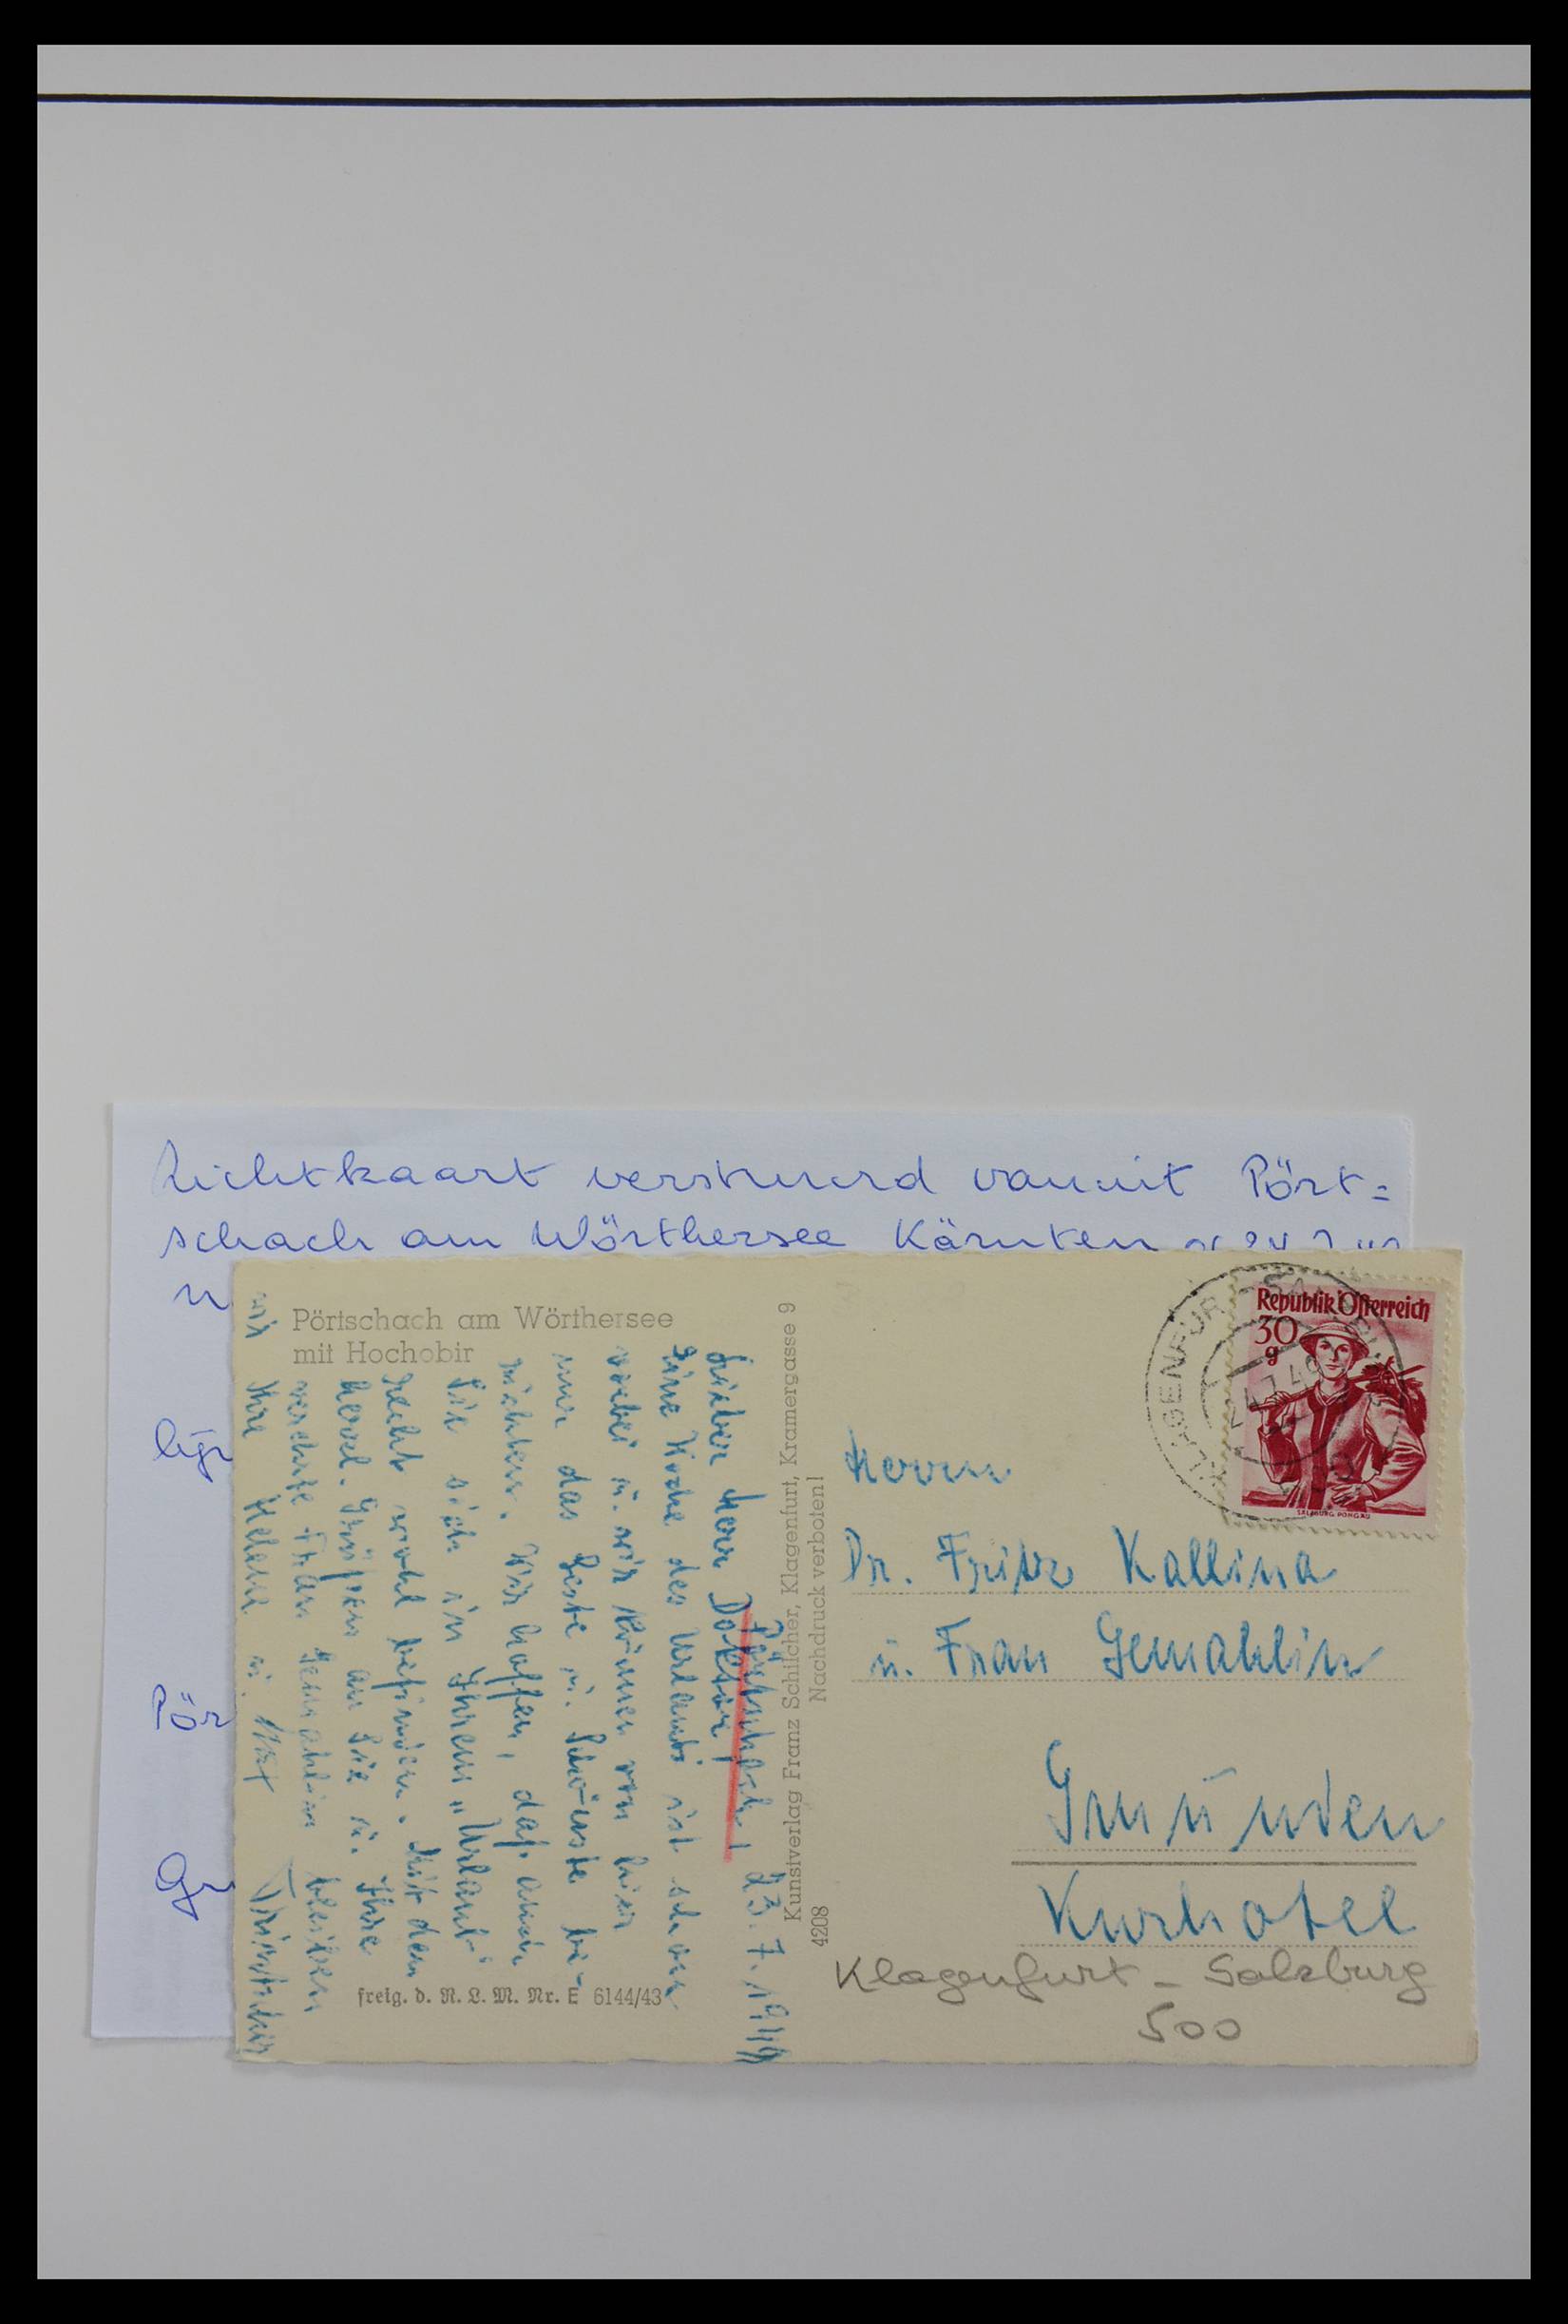 Zichtkaart verstuurd vanuit Pört=
schach am Wörthersee Kärnten
Pör
Pörtschach am Wörthersee
mit Hochobir
Pörtschach, 23.7.1949
Lieber Herr Doktor!
Eine Woche des Urlaubs ist schon
vorbei u. wir können von hier
nur das Beste u. Schönste be-
richten. Wir hoffen, daß auch
Sie sich in Ihrem "Urlaub"
recht wohl befinden. Mit den
herzl. Grüßen an Sie u. Ihre
verehrte Frau Gemahlin bleiben
wir Ihre Helene u.
freig. d. R. L. M. Nr. E 6144/43
Kunstverlag Franz Schilcher, Klagenfurt, Kramergasse 9
Nachdruck verboten!
4208
KLAGENFURT - SALZBURG
24.7.49
Republik Österreich
30
g
SALZBURG, PONGAU
Herrn
Dr. Fritz Kallina
u. Frau Gemahlin
Gmünden
Kurhotel
Klagenfurt - Salzburg
500